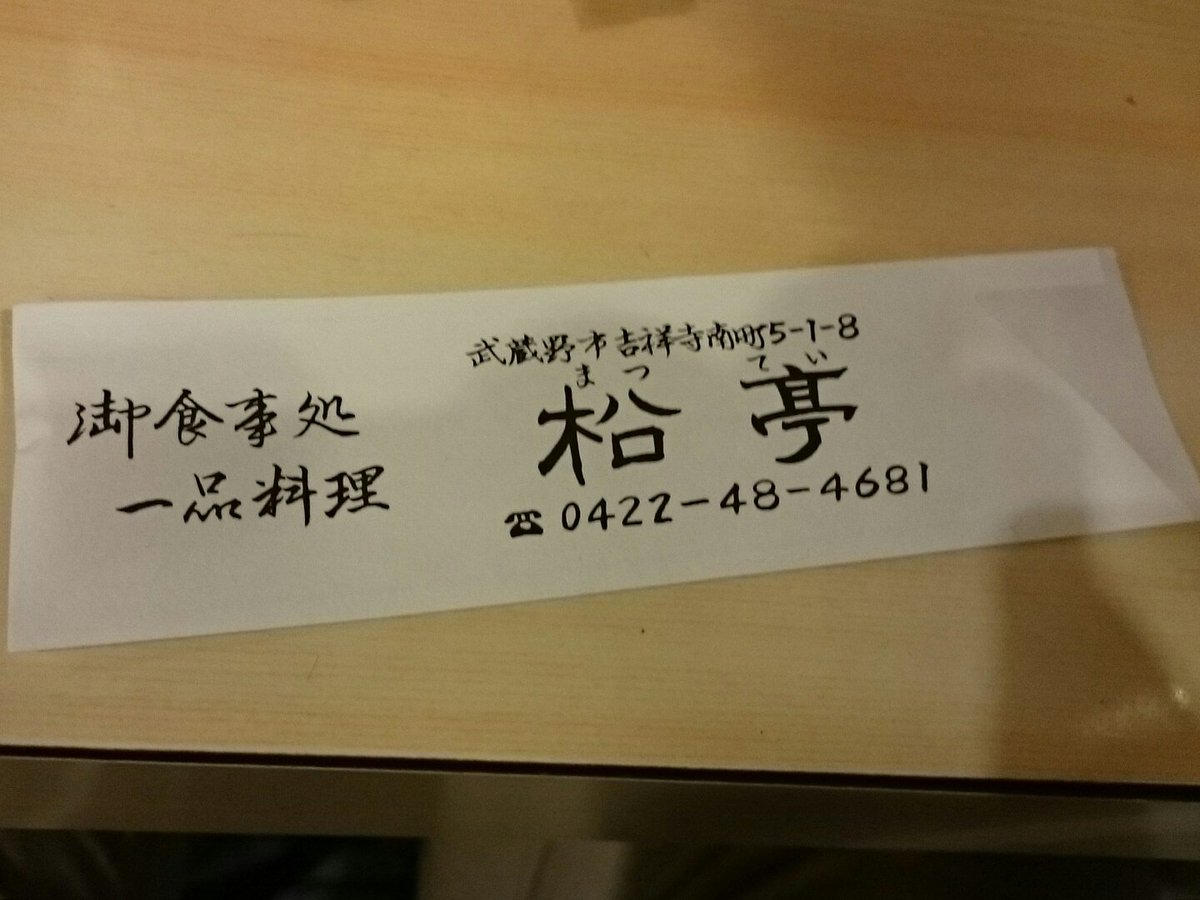 御食事処
一品料理
武蔵野市吉祥寺南町5-1-8
まつ てい
松亭
☎0422-48-4681